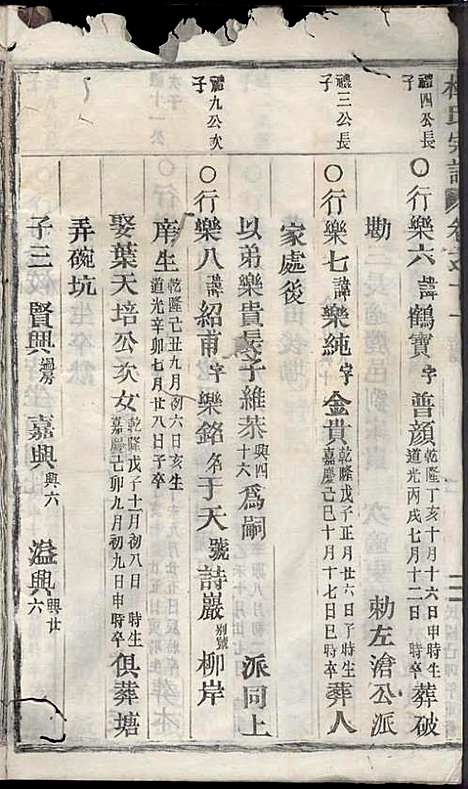 禮四公長子
○行樂六 諱鶴寶 字普顔 乾隆丁亥十月十六日申時生 道光丙戌七月十二日 葬破
塘 勅左滄公派
禮三公長子
○行樂七 諱樂純 字金貴 乾隆戊子正月廿六日子時生 嘉慶己巳十月十七日巳時卒 葬人
家處後
以弟樂貴長子維恭 興四十六 爲嗣 派同上
禮九公次子
○行樂八 諱紹甫 字樂銘 名于天 號詩嚴 別號柳岸
庠生 乾隆己丑九月初六日亥生 道光辛卯七月廿八日子卒
娶葉天培公次女 乾隆戊子十二月初八 時生 嘉慶己卯九月初九日申時卒 俱葬塘
弄碗坑
子三 賢興 嘉興 興六 溢興 興廿六